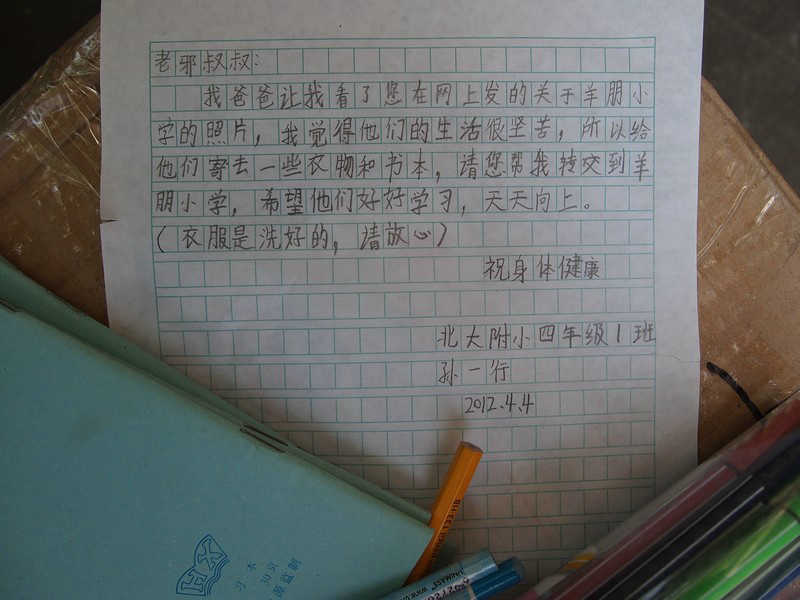 老邪叔叔：
我爸爸让我看了您在网上发的关于羊朋小
字的照片，我觉得他们的生活很坚苦，所以给
他们寄去一些衣物和书本，请您帮我转交到羊
朋小学，希望他们好好学习，天天向上。
（衣服是洗好的，请放心）
祝身体健康
北大附小四年级1班
孙一行
2012.4.4
HX
习本
30页
监制